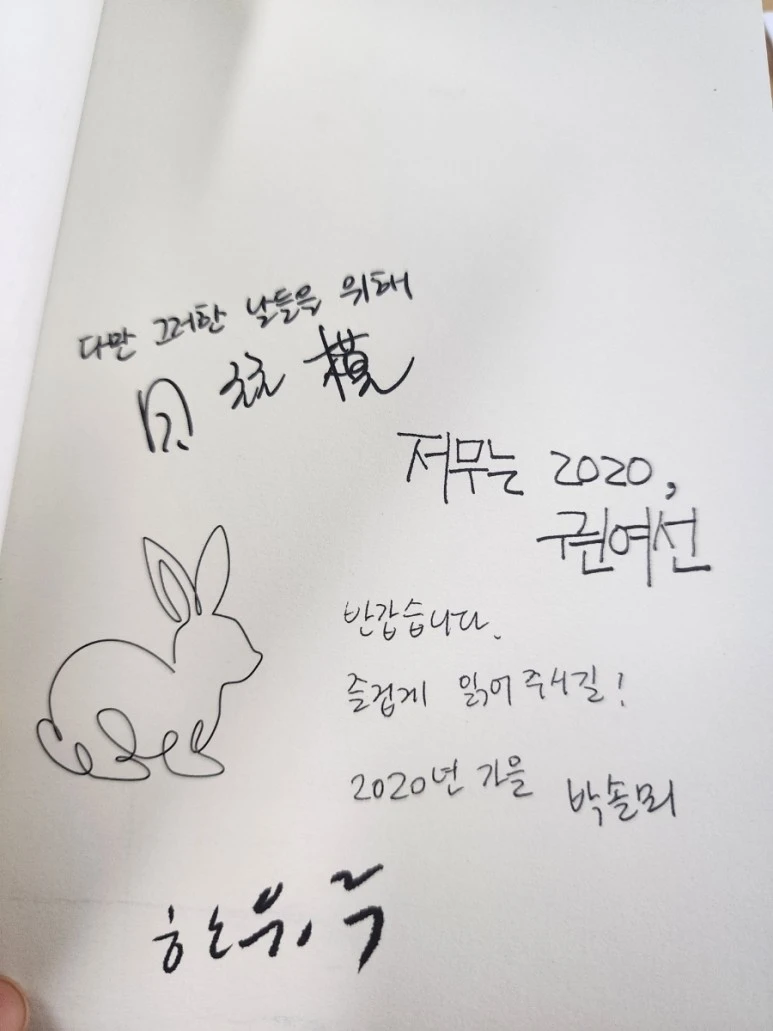 다만 그러한 날들을 위해
저무는 2020,
권여선
반갑습니다.
즐겁게 읽어주시길!
2020년 가을 박솔뫼